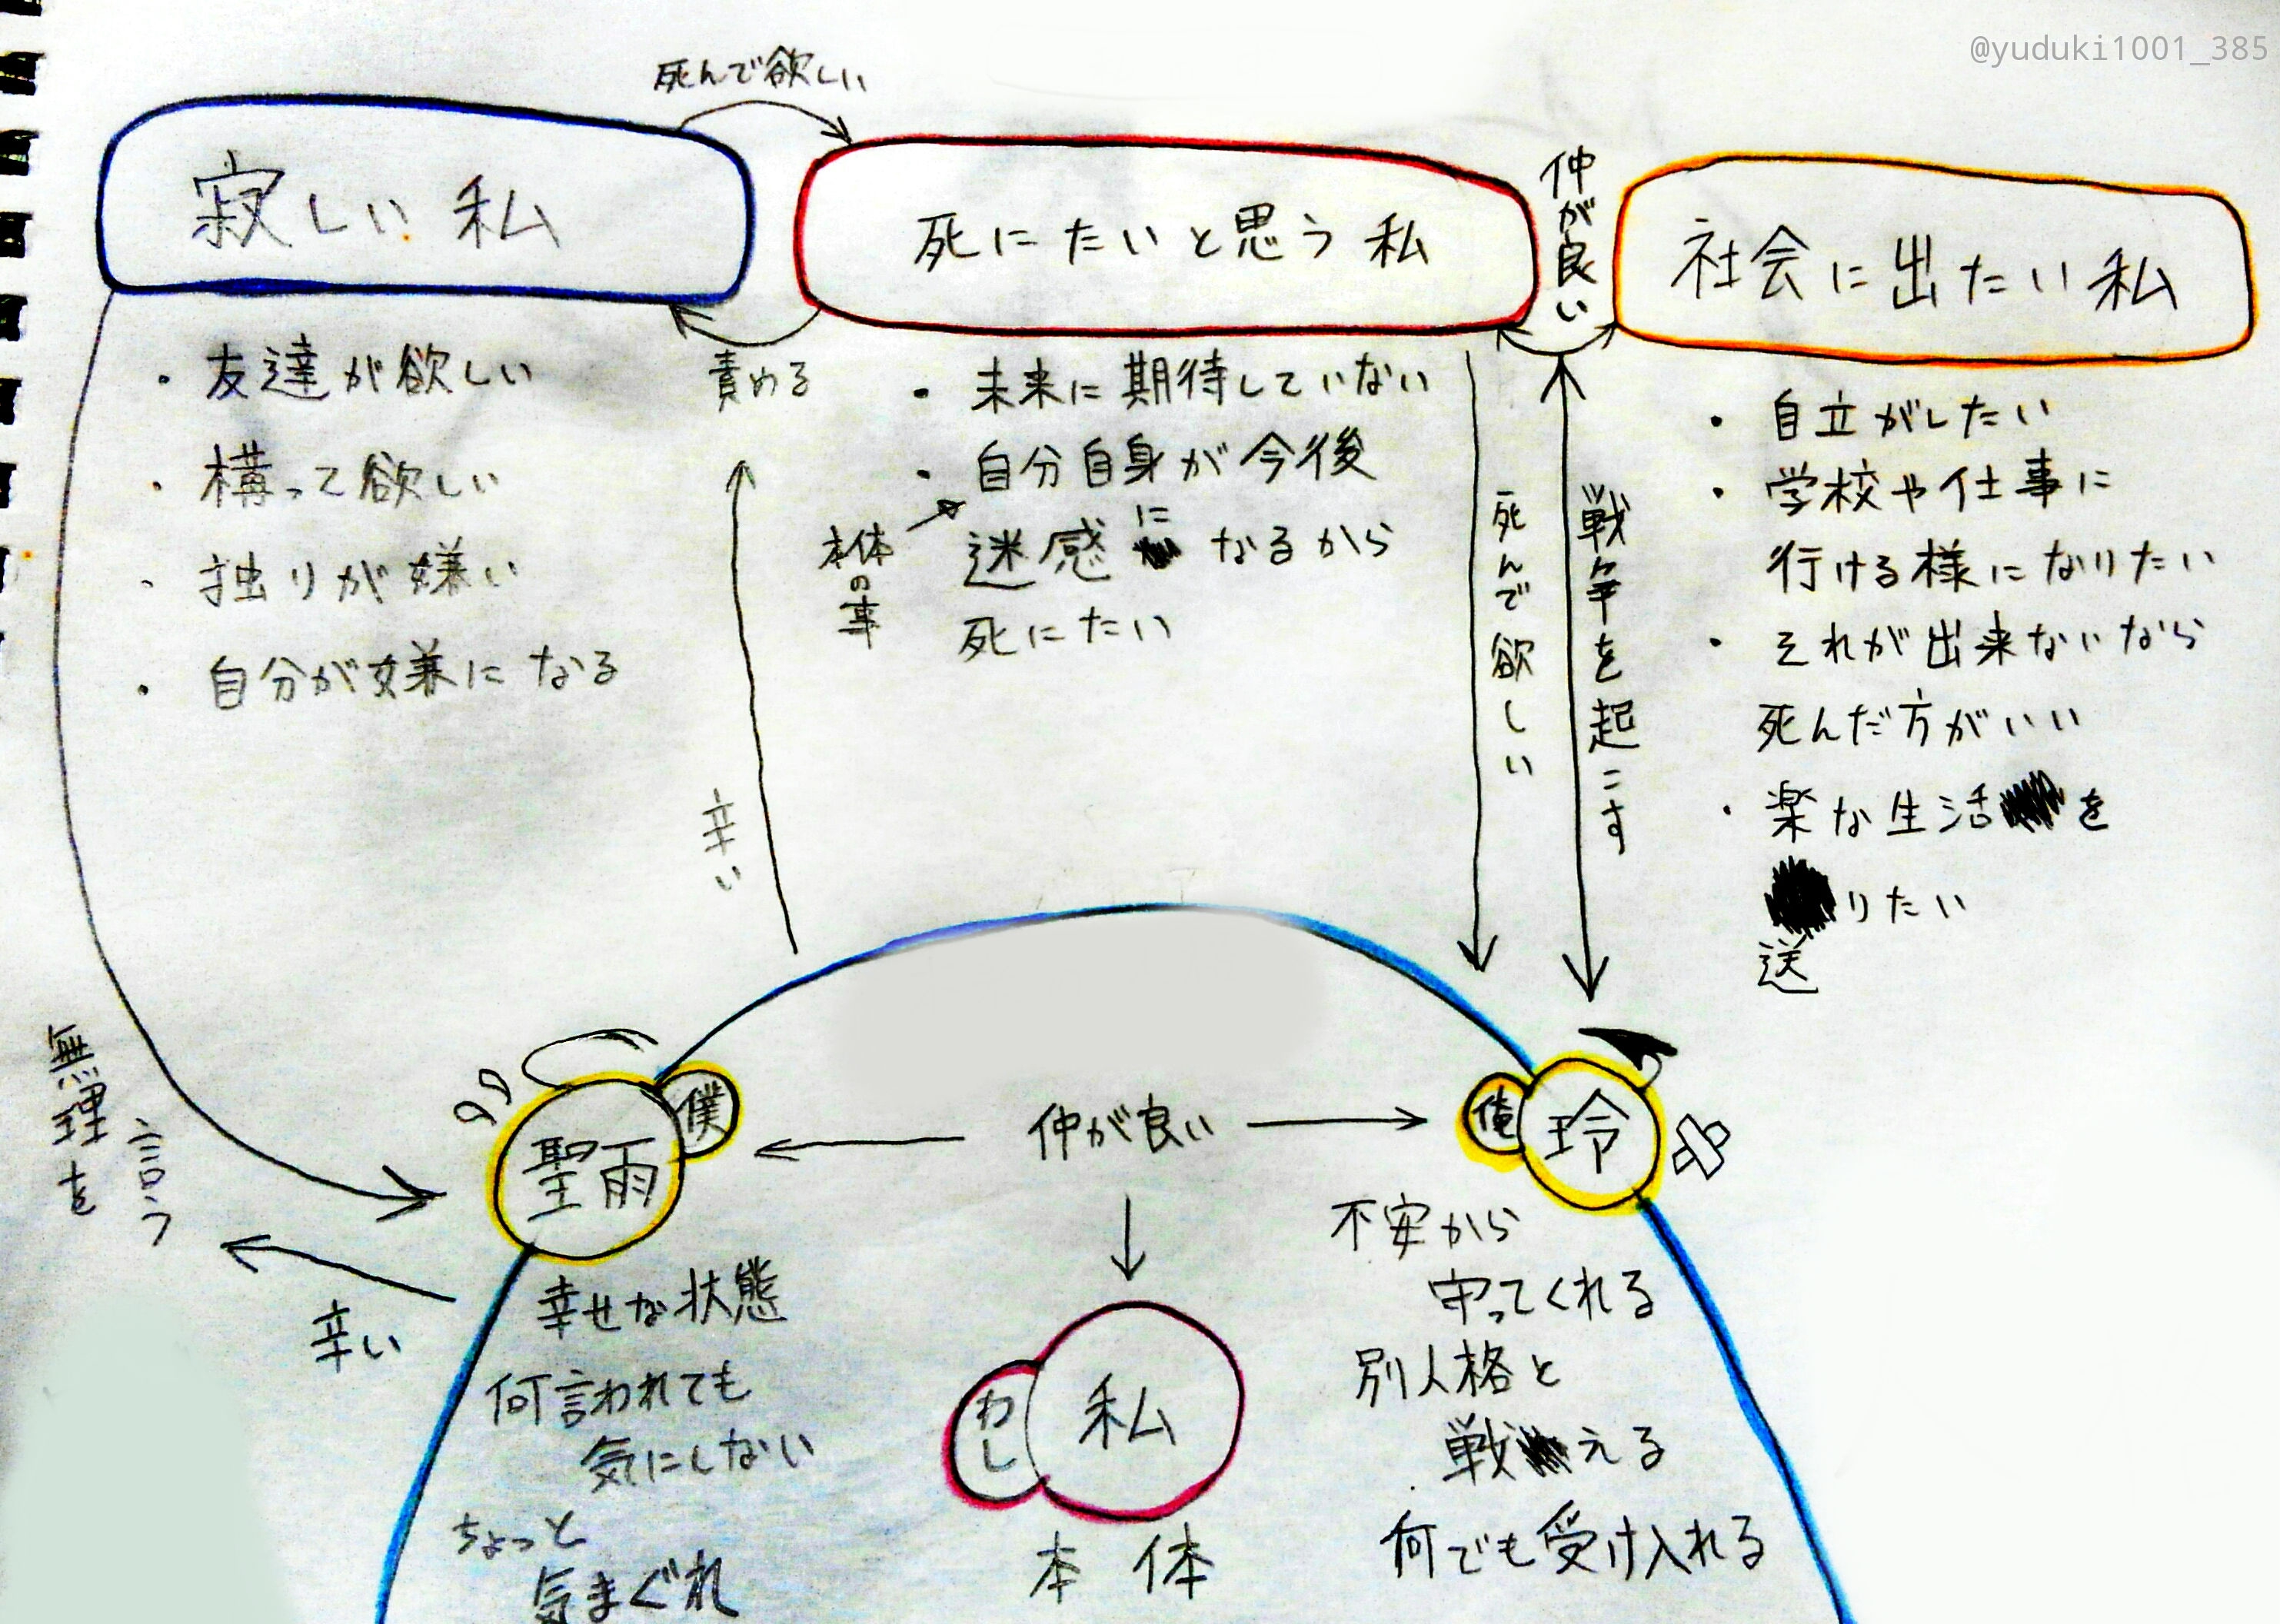 @yuduki1001_385
死んで欲しい
寂しい私
死にたいと思う私
仲が良い
社会に出たい私
責める
・友達が欲しい
・構って欲しい
・独りが嫌い
・自分が嫌になる
・未来に期待していない
・自分自身が今後
迷惑になるから
死にたい
本体の事
死んで欲しい
戦争を起こす
・自立がしたい
・学校や仕事に
行ける様になりたい
・それが出来ないなら
死んだ方がいい
・楽な生活を
送りたい
辛い
無理を
言う
辛い
聖雨
僕
仲が良い
俺
玲
幸せな状態
何言われても
気にしない
ちょっと
気まぐれ
わし
私
本体
不安から
守ってくれる
別人格と
戦える
何でも受け入れる